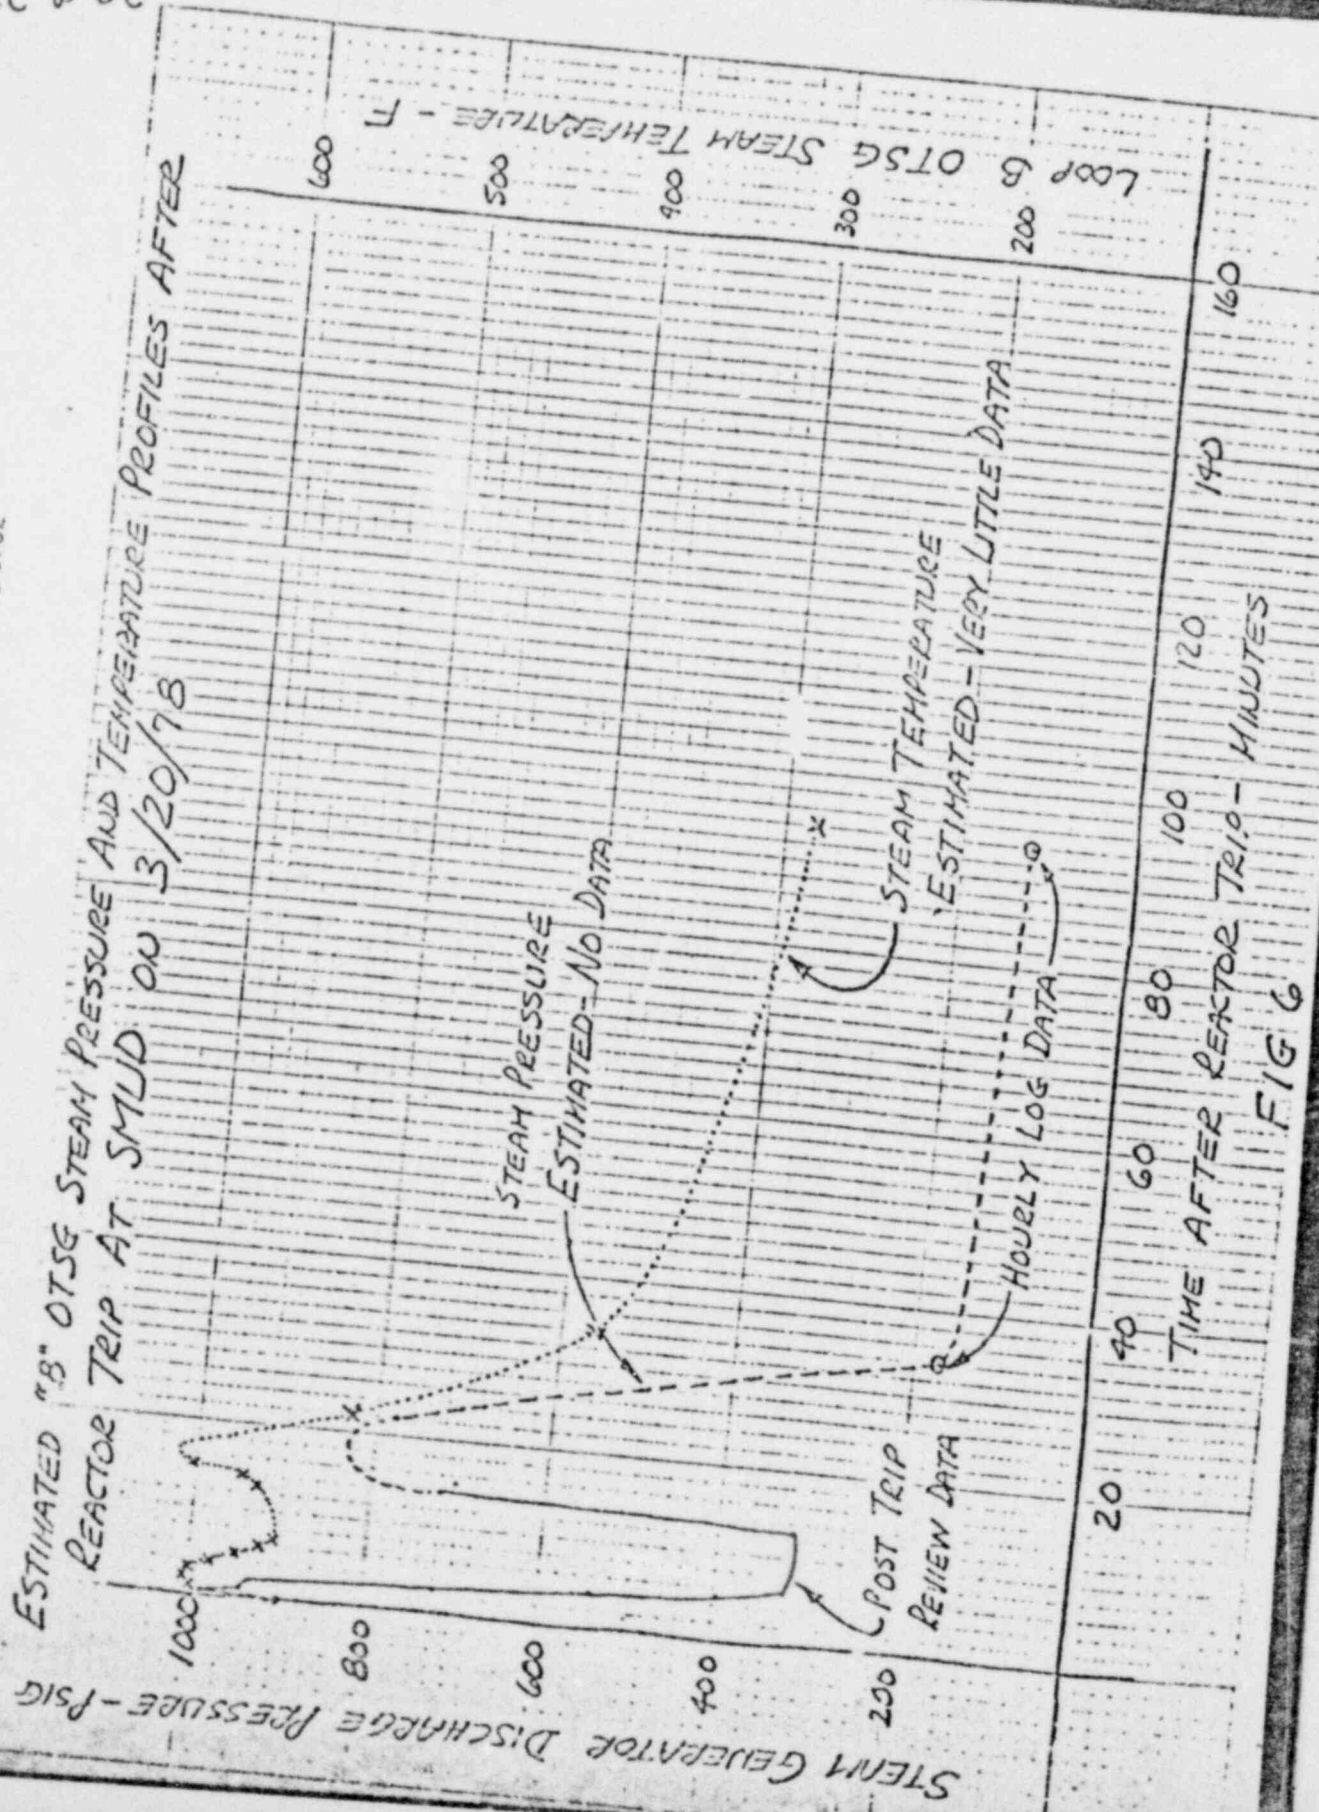 ESTIMATED "B" OTSG STEAM PRESSURE AND TEMPERATURE PROFILES AFTER
REACTOR TRIP AT SMUD ON 3/20/78
STEAM GENERATOR DISCHARGE PRESSURE - PSIG
1000
800
600
400
200
LOOP B OTSG STEAM TEMPERATURE - F
600
500
400
300
200
STEAM PRESSURE
ESTIMATED - NO DATA
STEAM TEMPERATURE
ESTIMATED - VERY LITTLE DATA
HOURLY LOG DATA
POST TRIP
REVIEW DATA
20
40
60
80
100
120
140
160
TIME AFTER REACTOR TRIP - MINUTES
FIG 6